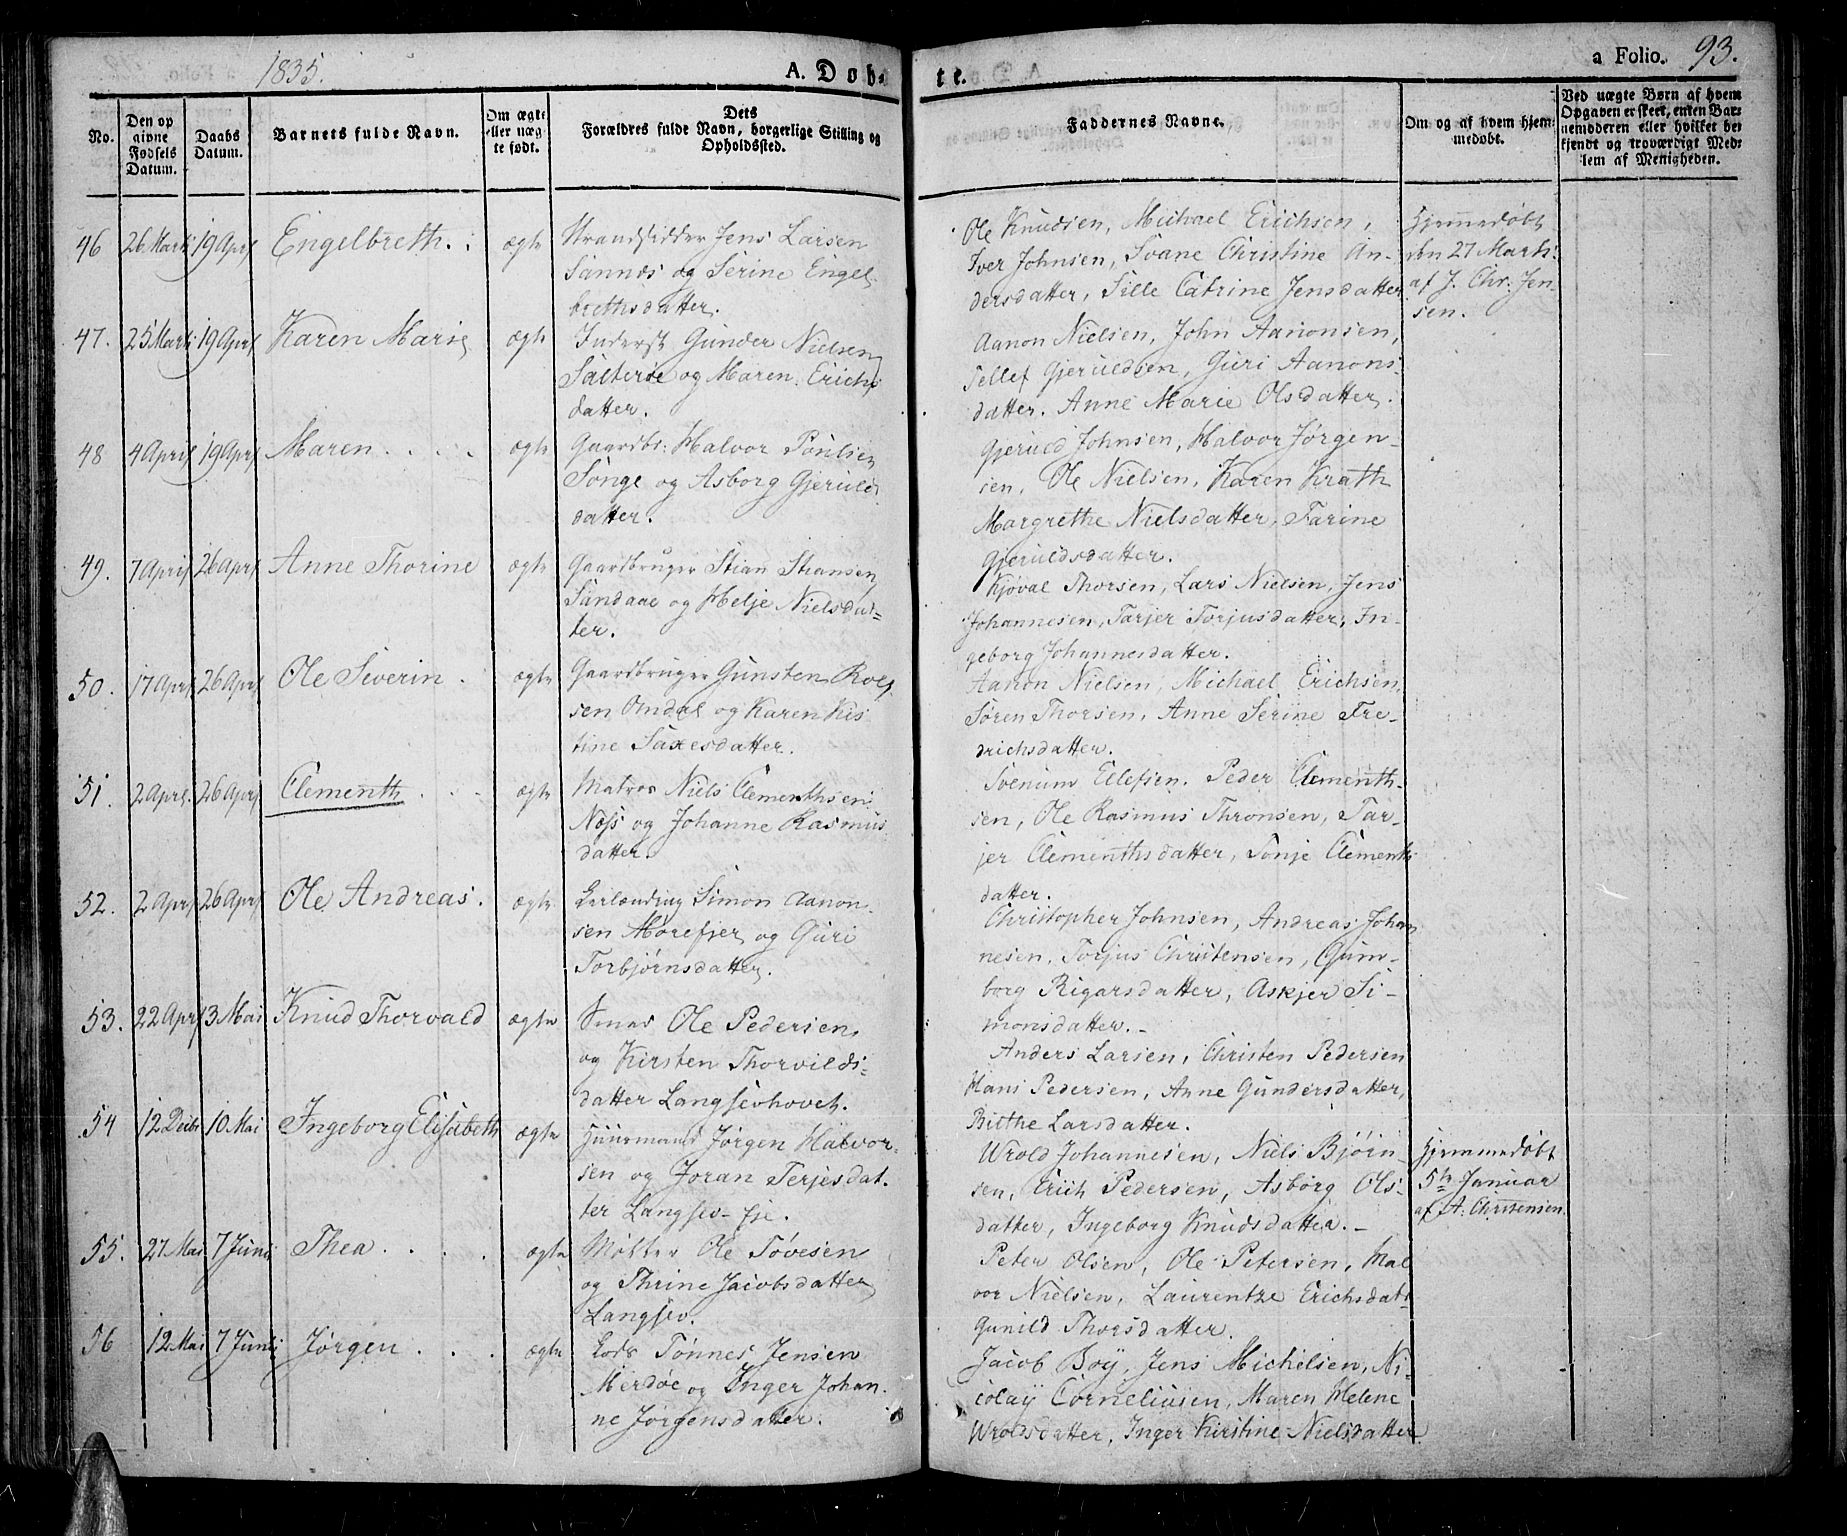 1835.
A. Døb-
te.
a Folio. 93.
No.
Den op
givne
Fødsels
Datum.
Daabs
Datum.
Barnets fulde Navn.
Om ægte
eller uæg-
te født.
Dets
Forældres fulde Navn, borgerlige Stilling og
Opholdssted.
Faddernes Navne.
Om og af hvem hjem-
medøbt.
Ved uægte Børn af hvem
Opgaven er skeet, enten Bar-
nemoderen eller hvilket be-
kjendt og troværdigt Med-
lem af Menigheden.
46 26 Marti 19 Apri Engelbreth. ægte Strandsidder Jens Larsen
Sannæs og Serine Engel-
brethsdatter.
Ole Knudsen, Michael Erichsen,
Iver Johnsen, Svane Christine An-
dersdatter, Sille Catrine Jensdatter
Hjemmedøbt
den 27 Marti
af J. Chr. Jen-
sen.
47. 25 Marti 19 Apri Karen Marie ægte Inderst Gunder Nielsen
Salterøe og Maren Erichs
datter.
Aanon Nielsen, John Aanonsen,
Tellef Gjeruldsen, Guri Aanons-
datter. Anne Marie Olsdatter.
48 4 April 19 Apri Maren ægte Gaardbr: Halvor Poulsen
Songe og Asborg Gjeruld
datter.
Gjeruld Johnsen, Halvor Jørgen-
sen, Ole Nielsen, Karen Krath
Margrethe Nielsdatter, Tarine
Gjeruldsdatter.
49. 7 April 26 Apri Anne Thorine ægte Gaardbruger Stian Stiansen
Sandaae og Helje Nielsdat-
ter.
Kjøval Thorsen, Lars Nielsen, Jens
Johannesen, Tarjer Torjusdatter, In-
geborg Johannesdatter.
50. 17 Apri 26 Apri Ole Severin. ægte Gaardbruger Gunsten Rolf
sen Omdal og Karen Kis
tine Saxesdatter.
Aanon Nielsen, Michael Erichsen,
Søren Thorsen, Anne Serine Fre-
drichsdatter.
51. 2 Apri. 26 Apri Clementh ægte Matros Niels Clementhsen
Næss og Johanne Rasmus
datter.
Svenum Ellefsen. Peder Clementh-
sen, Ole Rasmus Thronsen, Tar-
jer Clementhsdatter, Tonje Clements
datter.
52. 2 Apri 26 Apri Ole Andreas. ægte Simon Aanon-
sen Morefjer og Guri
Torbjørnsdatter.
Christopher Johnsen, Andreas Johan
nesen, Torjus Christensen, Gum-
borg Rigarsdatter, Askjer Si-
monsdatter.-
53. 22 Apri 3 Mai Knud Thorvald ægte Smed Ole Pedersen
og Kirsten Thorvilds-
datter Langsevhovet.
Anders Larsen, Christen Pedersen
Hans Pedersen, Anne Gundersdatter,
Birthe Larsdatter.
54 12 Decbr 10 Mai Ingeborg Elisabeth ægte Huusmand Jørgen Halvor-
sen og Joran Terjesdat-
ter Langsev-Eje.
Wrold Johannesen, Niels Bjørn-
sen, Erich Pedersen, Asborg Ols-
datter, Ingeborg Knudsdatter.-
Hjemmedøbt
5te Januar
af A. Christensen.
55. 27 Mai 7 Junii Thea ægte Møller Ole Tovesen
og Thrine Jacobsdatter
Langsev.
Peter Olsen, Ole Petersen, Hal
vor Nielsen, Laurentze Erichsdat-
Gunild Thorsdatter.
56 12 Mai 7 Junii Jørgen ægte Lods Tønnes Jensen
Merdøe og Inger Johan-
ne Jørgensdatter.
Jacob Boy, Jens Michelsen, Ni-
colay Corneliusen, Maren Helene
Wroldsdatter, Inger Kirstine Nielsdatter